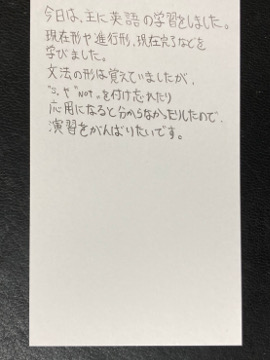 今日は、主に英語の学習をしました。
現在形や進行形、現在完了などを
学びました。
文法の形は覚えていましたが、
"s"や"not"を付け忘れたり
応用になると分からなかったりしたので、
演習をがんばりたいです。